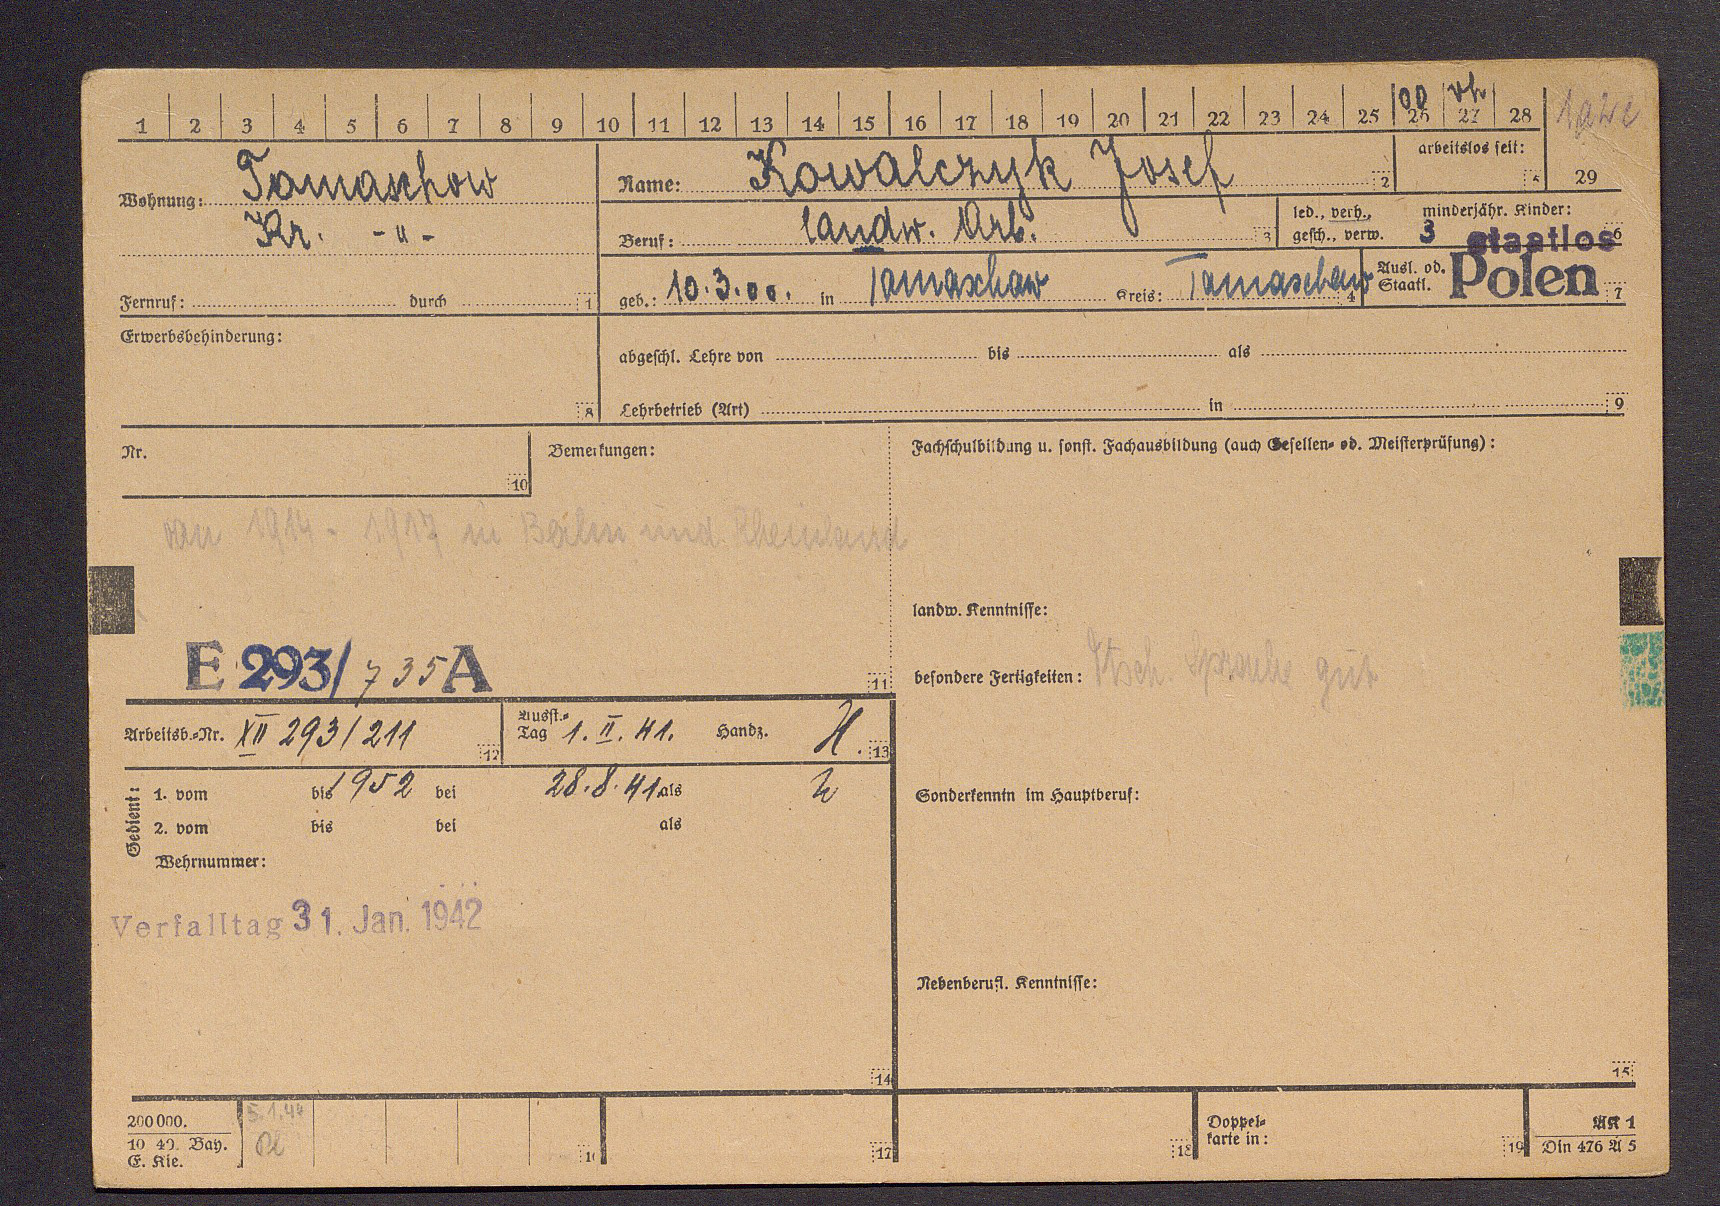 1 2 3 4 5 6 7 8 9 10 11 12 13 14 15 16 17 18 19 20 21 22 23 24 25 26 27 28
00 vh
arbeitslos seit:
5 29
Wohnung: Tomaschow
Kr. -"-
Name: Kowalczyk Josef 2
Beruf: landw. Arb. 3
led., verh., gesch., verw.
minderjähr. Kinder:
3 6
staatlos
Fernruf: durch 1
geb.: 10.3.00. in Tomaschow Kreis: Tomaschow 4
Ausl. od. Staatl. Polen 7
Erwerbsbehinderung:
8
abgeschl. Lehre von bis als
Lehrbetrieb (Art) in 9
Nr.
10
Bemerkungen:
Fachschulbildung u. sonst. Fachausbildung (auch Gesellen- od. Meisterprüfung):
von 1914 - 1917 in Berlin und Rheinland
landw. Kenntnisse:
E 293/735 A
11
besondere Fertigkeiten: Dtsch. Sprache gut
Arbeitsb.-Nr. XII 293/211 12
Ausst.-Tag 1. II. 41. Handz. H. 13
Gedient:
1. vom bis 1952 bei 28.8.41 als
2. vom bis bei als
Wehrnummer:
Sonderkenntn im Hauptberuf:
Verfalltag 31. Jan. 1942
Nebenberufl. Kenntnisse:
14
15
200 000.
10 40. Bay.
E. Kie.
5.1.44
16
17
18
Doppelkarte in:
19
AK 1
Din 476 A 5